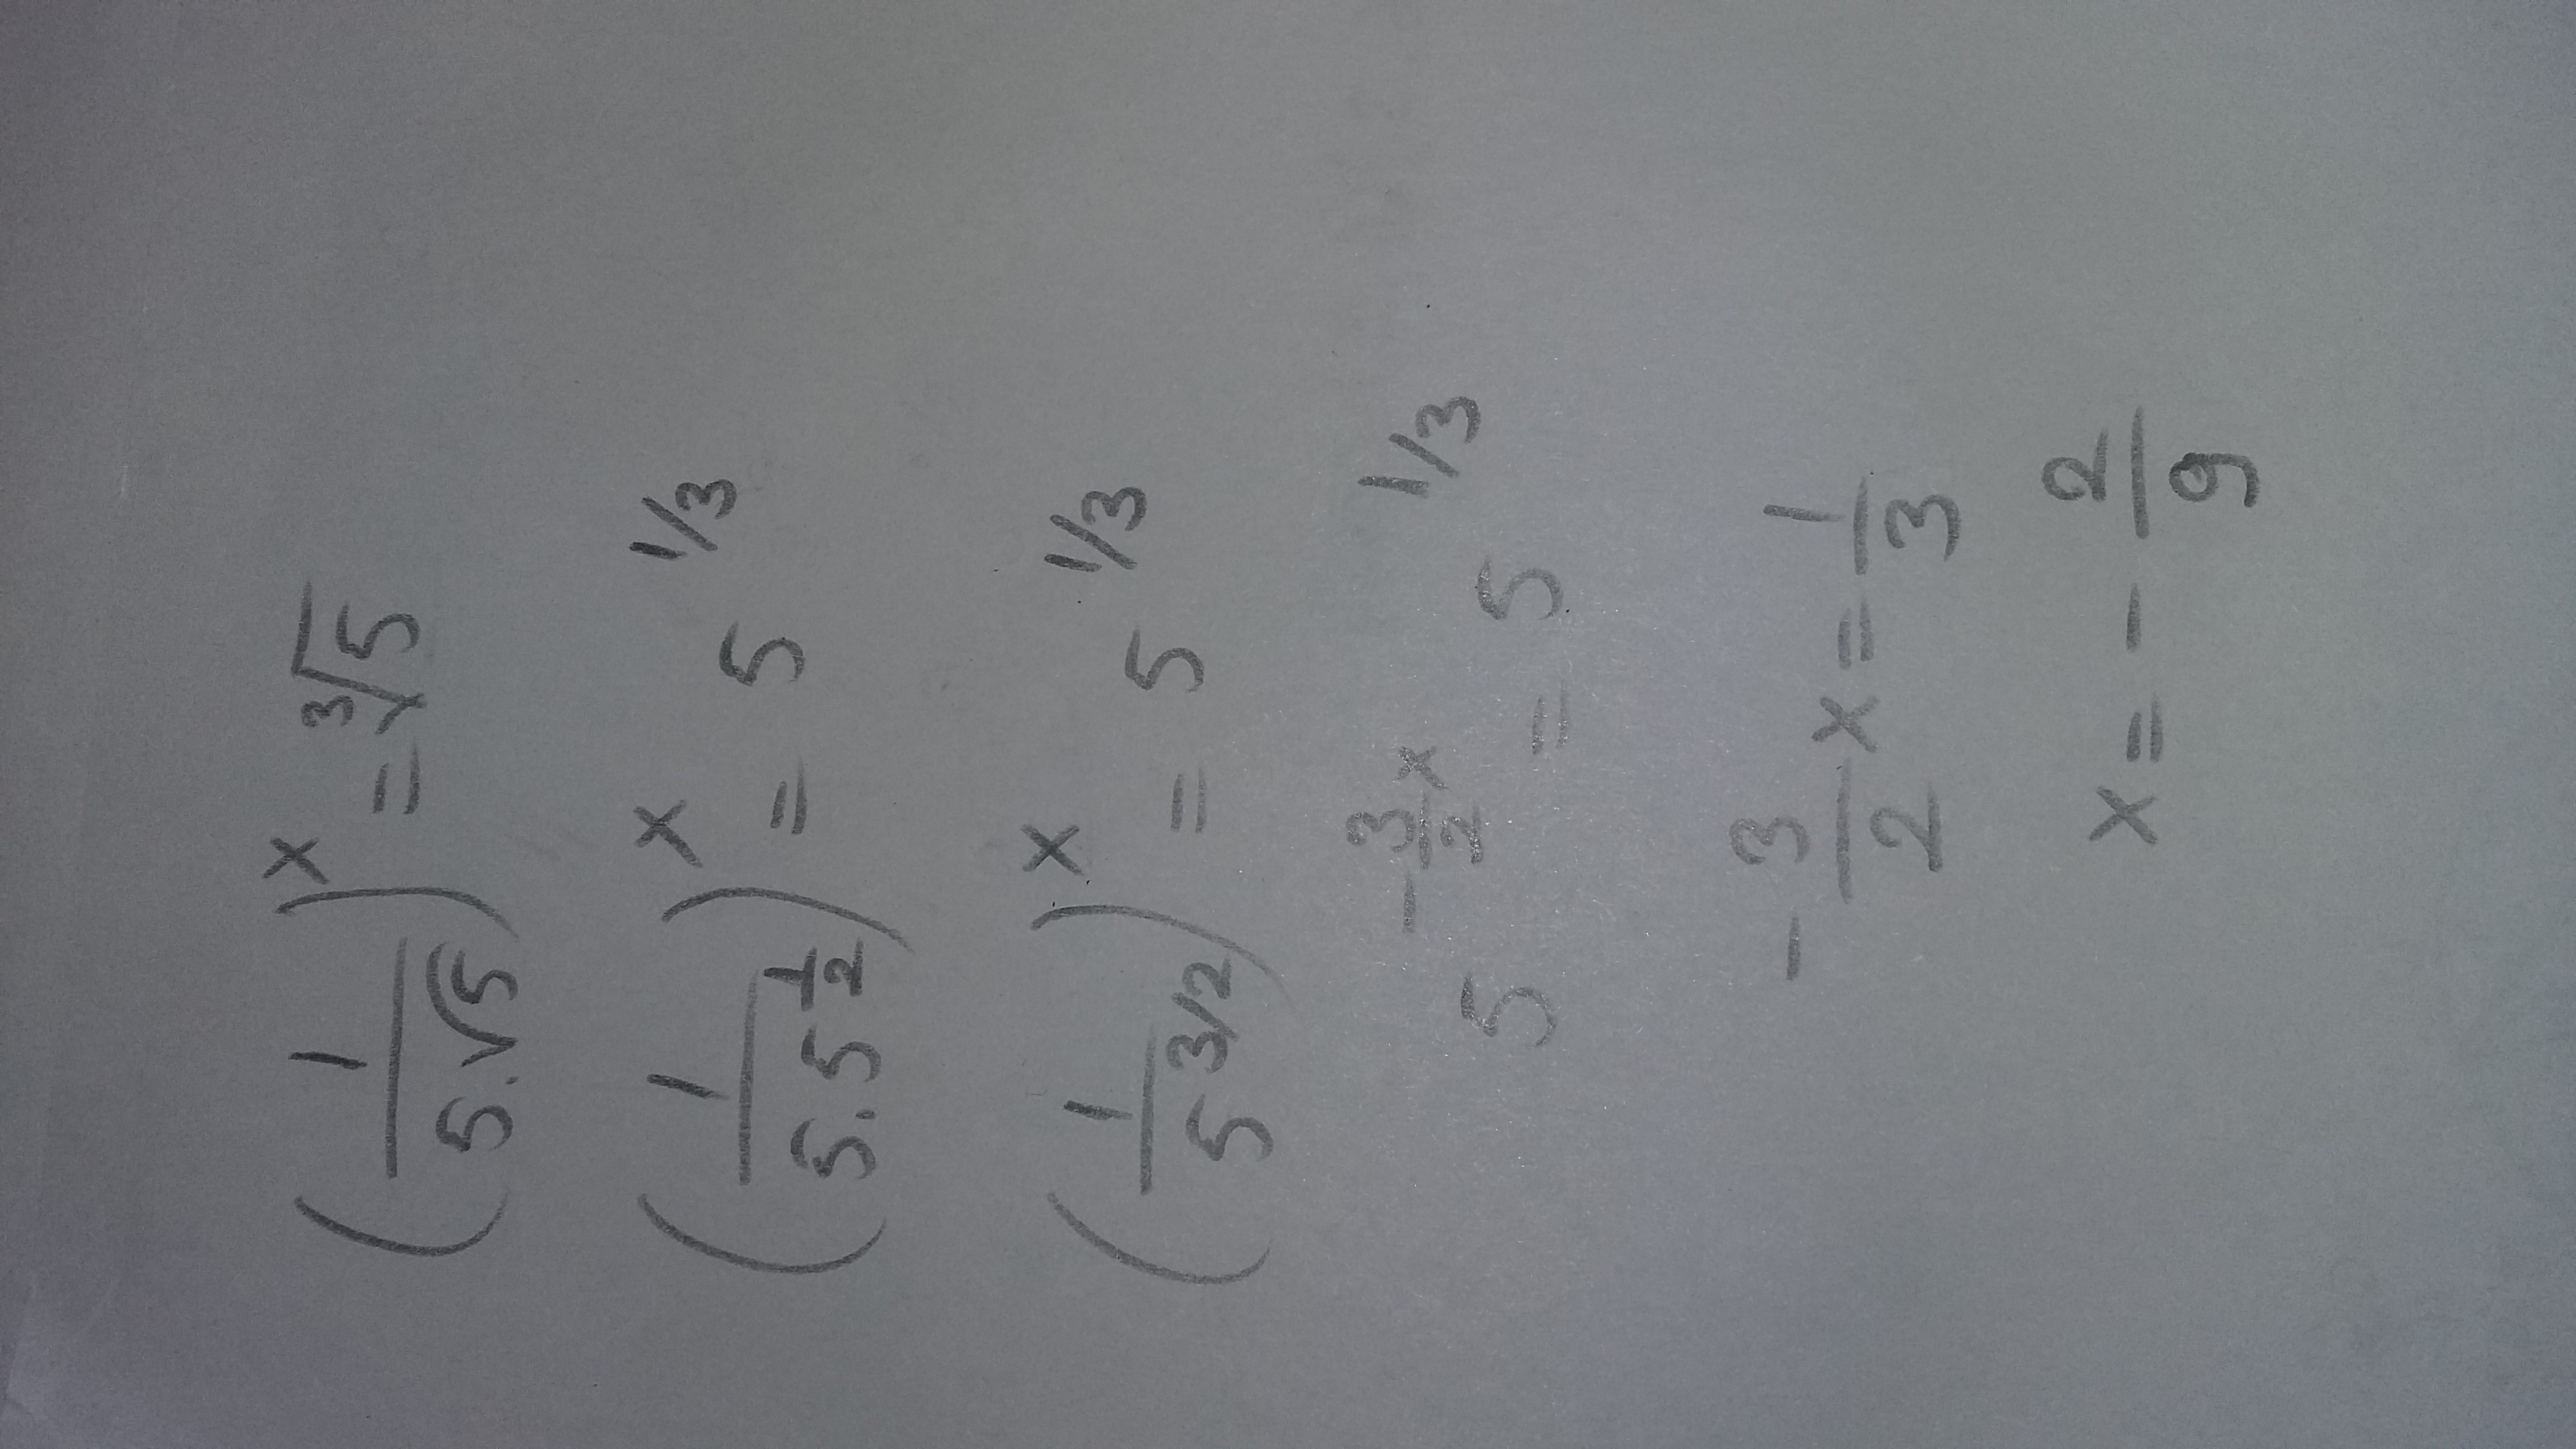 (1/(5.√5))^x = ³√5
(1/(5.5^(1/2)))^x = 5^(1/3)
(1/5^(3/2))^x = 5^(1/3)
5^(-3/2 x) = 5^(1/3)
-3/2 x = 1/3
x = -2/9